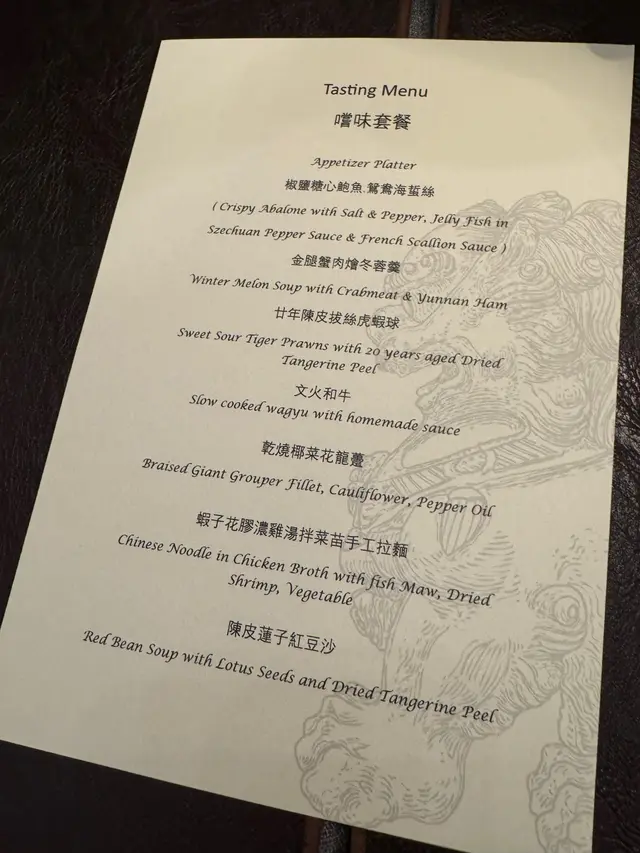 Tasting Menu
嚐味套餐
Appetizer Platter
椒鹽糖心鮑魚.鴛鴦海蜇絲
( Crispy Abalone with Salt & Pepper, Jelly Fish in
Szechuan Pepper Sauce & French Scallion Sauce )
金腿蟹肉燴冬蓉羹
Winter Melon Soup with Crabmeat & Yunnan Ham
廿年陳皮拔絲虎蝦球
Sweet Sour Tiger Prawns with 20 years aged Dried
Tangerine Peel
文火和牛
Slow cooked wagyu with homemade sauce
乾燒椰菜花龍躉
Braised Giant Grouper Fillet, Cauliflower, Pepper Oil
蝦子花膠濃雞湯拌菜苗手工拉麵
Chinese Noodle in Chicken Broth with fish Maw, Dried
Shrimp, Vegetable
陳皮蓮子紅豆沙
Red Bean Soup with Lotus Seeds and Dried Tangerine Peel